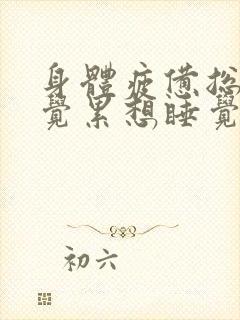 身體疲憊總
覺累想睡覺
初六